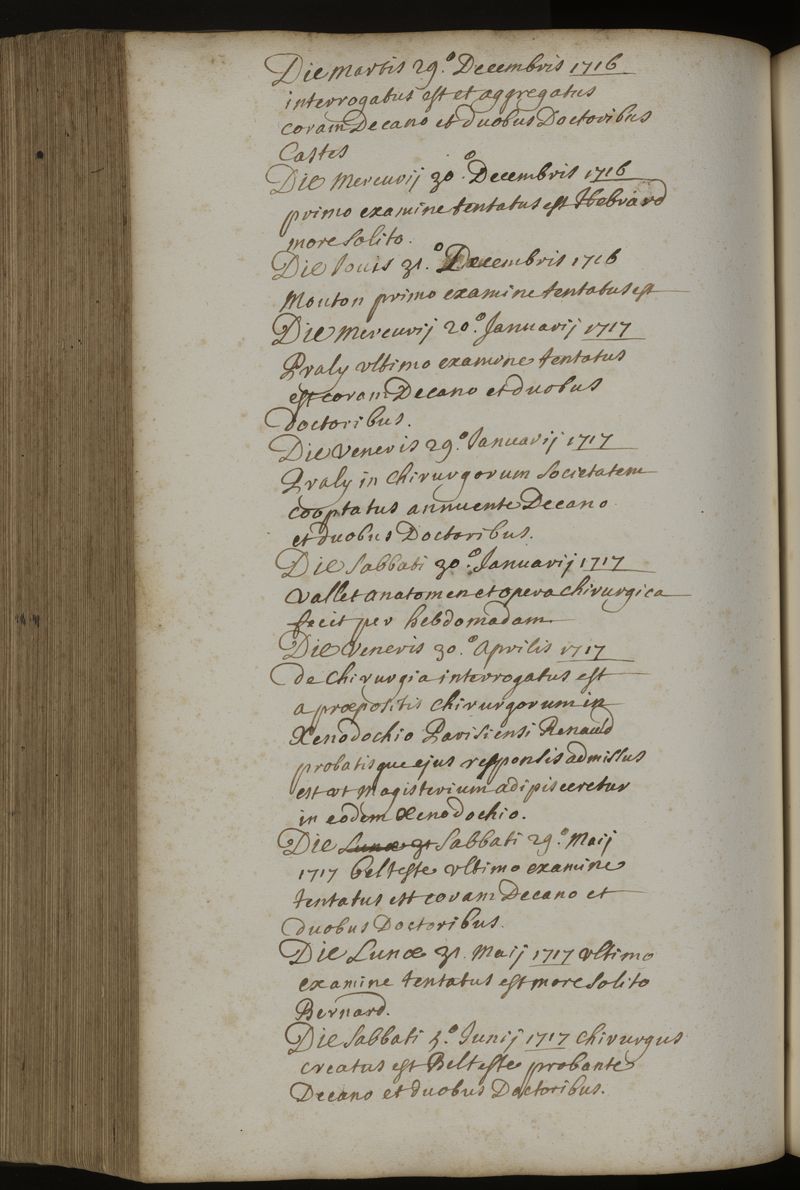 Die martis 29.º Decembris 1716
interrogatus est et aggregatus
coram Decano et duobus Doctoribus
Castes
Die Mercurij 30.º Decembris 1716
primo examine tentatus est Hebrard
more solito.
Die Jouis 31.º Decembris 1716
Mouton primo examine tentatus est
Die Mercurij 20.º Januarij 1717
Praly vltimo examine tentatus
est coram Decano et duobus
doctoribus.
Die Veneris 29.º Januarij 1717
Praly in chirurgorum societatem
cooptatus annuente Decano
et duobus Doctoribus.
Die Sabbati 30.º Januarij 1717
Vallet anatomen et opera chirurgica
fecit per hebdomadam
Die Veneris 30.º Aprilis 1717
de Chirurgia interrogatus est
a præpositis chirurgorum in
Xenodochio Parisiensi Renauld
probatisque ejus responsis admissus
est vt Magisterium adipisceretur
in eodem Xenodochio.
Die Lunæ 31 Sabbati 29.º Maij
1717 belteste vltimo examine
tentatus est coram Decano et
duobus Doctoribus.
Die Lunæ 31. Maij 1717 vltimo
examine tentatus est more solito
Bernard.
Die Sabbati 5.º Junij 1717 chirurgus
creatus est Belteste probante
Decano et duobus Doctoribus.